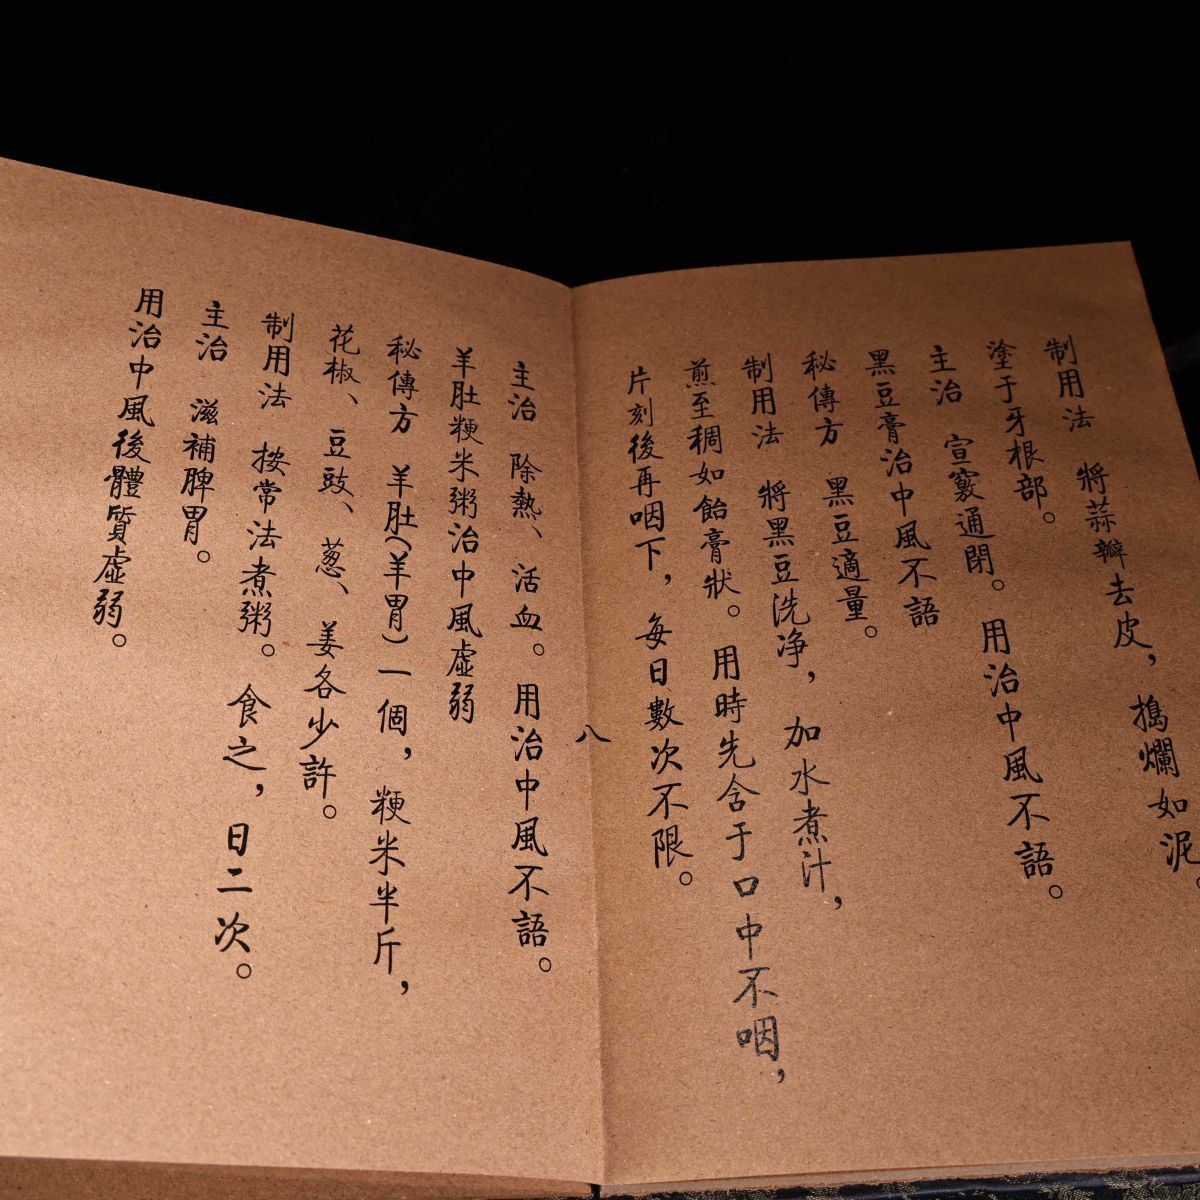 制用法　將蒜瓣去皮，搗爛如泥。
塗于牙根部。
主治　宣竅通閉。用治中風不語。
黑豆膏治中風不語
秘傳方　黑豆適量。
制用法　將黑豆洗净，加水煮汁，
煎至稠如飴膏狀。用時先含于口中不咽，
片刻後再咽下，每日數次不限。
八
主治　除熱、活血。用治中風不語。
羊肚粳米粥治中風虛弱
秘傳方　羊肚(羊胃)一個，粳米半斤，
花椒、豆豉、葱、姜各少許。
制用法　按常法煮粥。食之，日二次。
主治　滋補脾胃。
用治中風後體質虛弱。